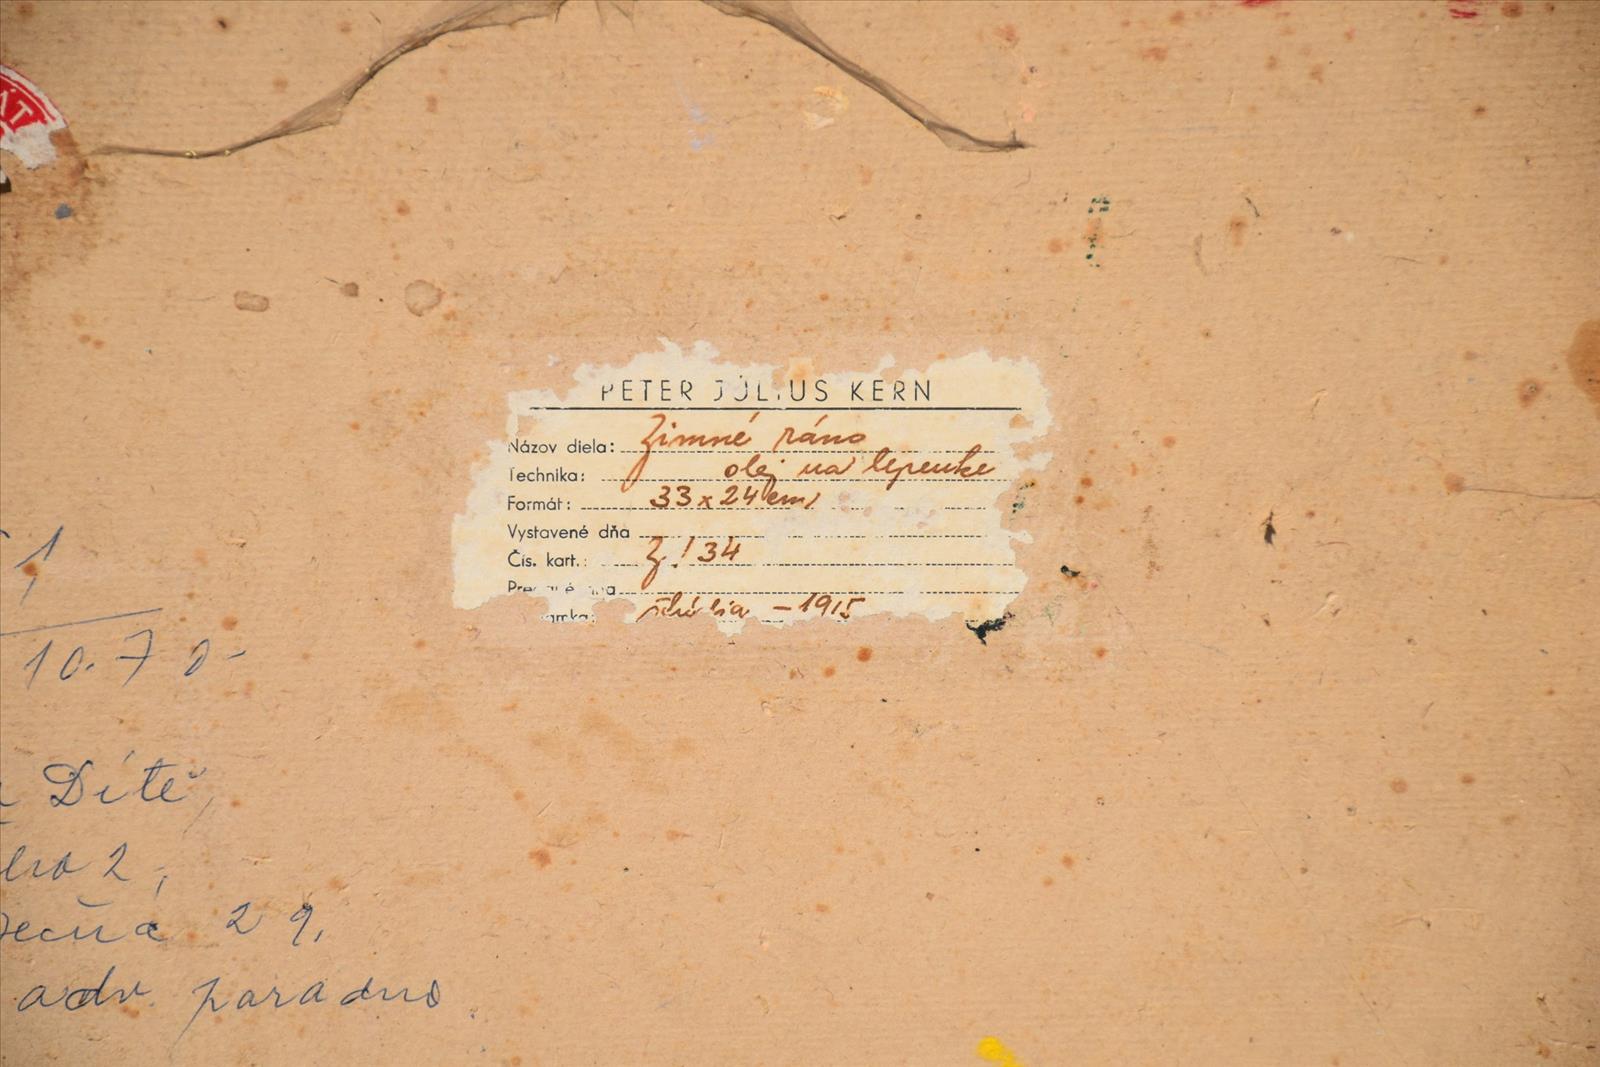 ÁT
PETER JÚLIUS KERN
Názov diela: Zimné ráno
Technika: olej na lepenke
Formát: 33 x 24 cm
Vystavené dňa
Čís. kart.: Z! 34
štúdia – 1915
1
10. 7 0-
Dítě,
2,
29,
adv. poradno